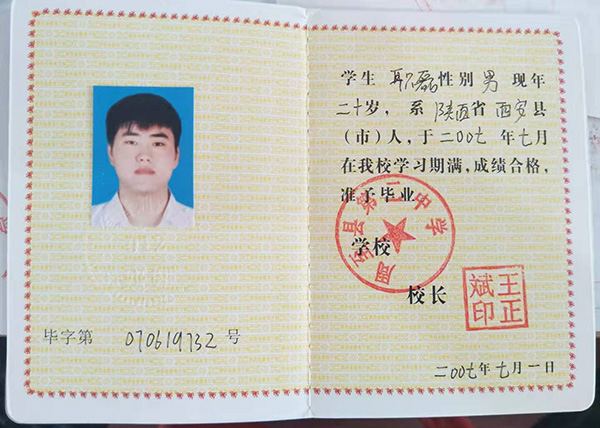 毕字第 070619732 号
学生 职磊 性别 男 现年
二十岁，系 陕西省 西安县
（市）人，于二〇〇七年七月
在我校学习期满，成绩合格，
准予毕业
周至县第二中学
学校
校长
王正斌印
二〇〇七年七月一日